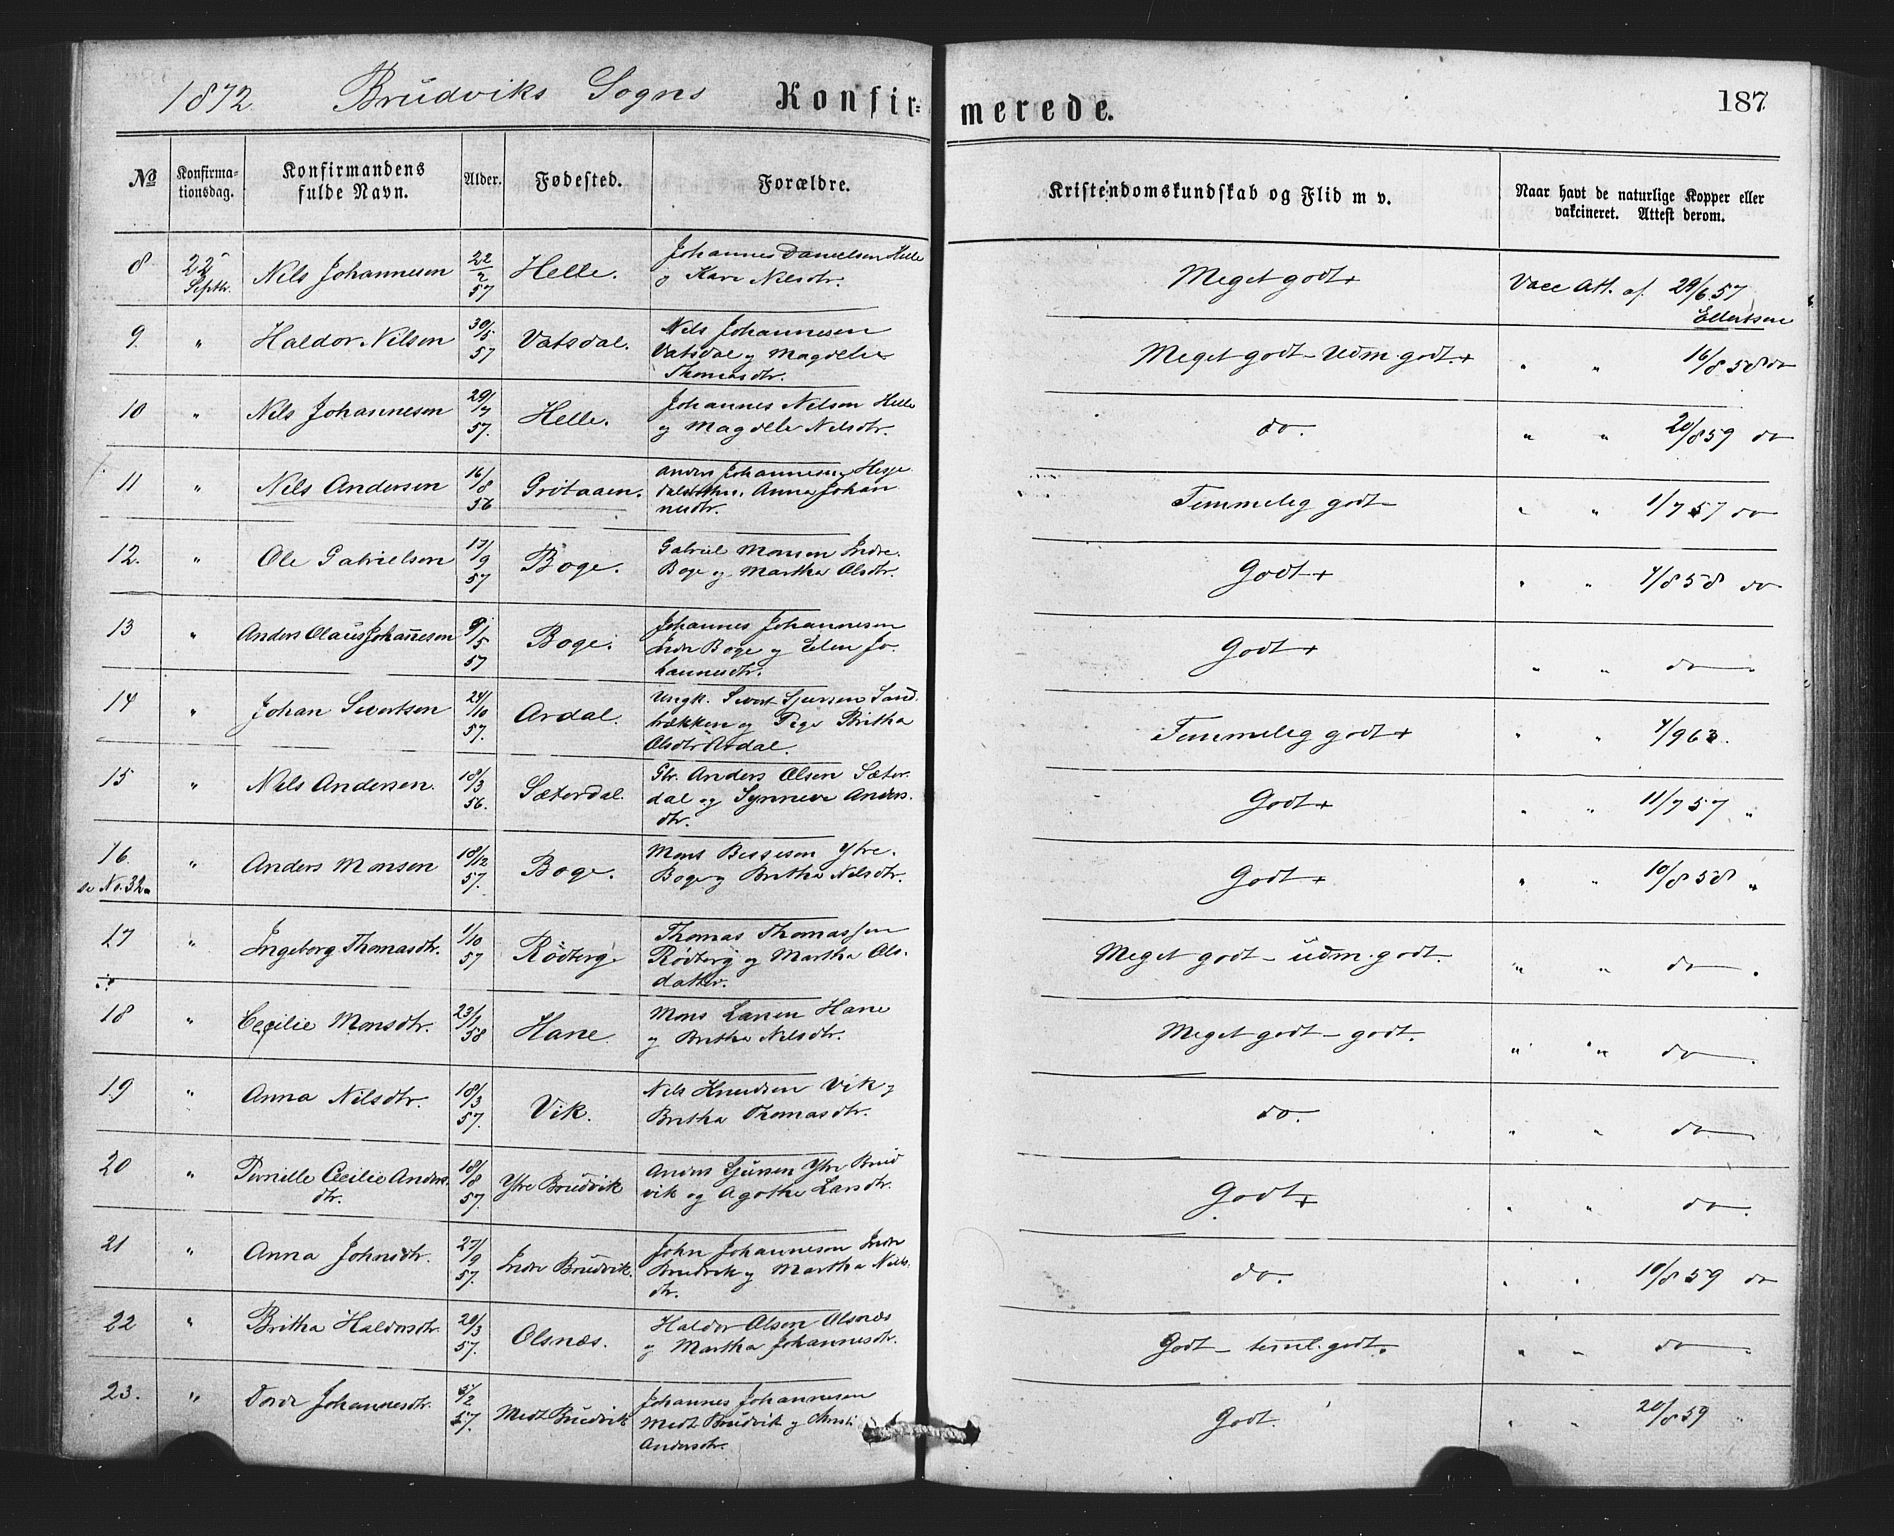 1872 Brudviks Sogns Konfirmerede. 187
№ Konfirmationsdag. Konfirmandens fulde Navn. Alder. Fødested. Forældre. Kristendomskundskab og Flid m v. Naar havt de naturlige Kopper eller vakcineret. Attest derom.
8 22 Septbr. Nils Johannesen 22/2 57 Helle. Johannes Danielsen Helle
og Kari Nilsdtr. Meget godt + Vacc Att. af 29/6 57
Ellertsen
9. " Haldor Nilsen 30/5 57 Vatsdal. Nils Johannesen
Vatsdal og Magdele
Thomasdtr. Meget godt – Udm. godt + " " 16/8 58 do
10 " Nils Johannesen 29/7 57. Helle. Johannes Nilsen Helle
og Magdele Nilsdtr. do. " " 20/8 59 do
11 " Nils Andersen 16/8 56 Grötaaen. Anders Johannesen Hesje
Anna Johan
nesdtr. Temmelig godt – " " 1/7 57 do
12. " Ole Gabrielsen 17/9 57 Boge. Gabriel Monsen Indre
Boge og Martha Olsdtr. Godt + " " 4/8 58 do
13 " Anders Olaus Johannesen 9/5 57 Boge. Johannes Johannesen
Indre Boge og Elen Jo
hannesdtr. Godt + " " do
14 " Johan Sivertsen 24/10 57. Ardal. Ungk. Sivert Sjursen Sand
brækken og Pige Britha
Olsdtr Ardal. Temmelig godt + " " 4/9 63.
15 " Nils Andersen. 18/3 56. Sæterdal. Gbr. Anders Olsen Sæter
dal og Synneve Anders
dtr. Godt + " " 11/7 57 "
16. " Anders Monsen 18/12 57. Boge. Mons Bessesen Ytre
Boge og Britha Nilsdtr. Godt + " " 10/8 58 "
se No. 32.
17 " Ingeborg Thomasdtr. 1/10 57 Rödberg Thomas Thomassen
Rödberg og Martha Ols
datter. Meget godt – udm. godt. " " do
18 " Cecilie Monsdtr. 23/1 58 Hane Mons Larsen Hane
og Britha Nilsdtr. Meget godt – godt. " " do
19 " Anna Nilsdtr. 18/3 57. Vik. Nils Knudsen Vik og
Britha Thomasdtr. do. " " do
20 " Pernille Cecilie Anders
dtr. 18/8 57. Ytre Brudvik Anders Sjursen Ytre Brud
vik og Agathe Larsdtr. Godt + " " do.
21 " Anna Johnsdtr. 27/9 57. Indre Brudvik. John Johannesen Indre
Brudvik og Martha Nils
dtr. do. " " 10/8 59 do
22 " Britha Haldorsdtr. 20/3 57. Olsnæs. Haldor Olsen Olsnæs
og Martha Johannesdtr. Godt – teml. godt. " " do
23. " Dorde Johannesdtr. 5/2 57. Medt Brudvik Johannes Johannesen
Medt Brudvik og Christi
Andersdtr. Godt. " " 20/8 59 "